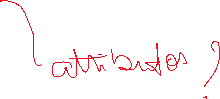 attibutos ?